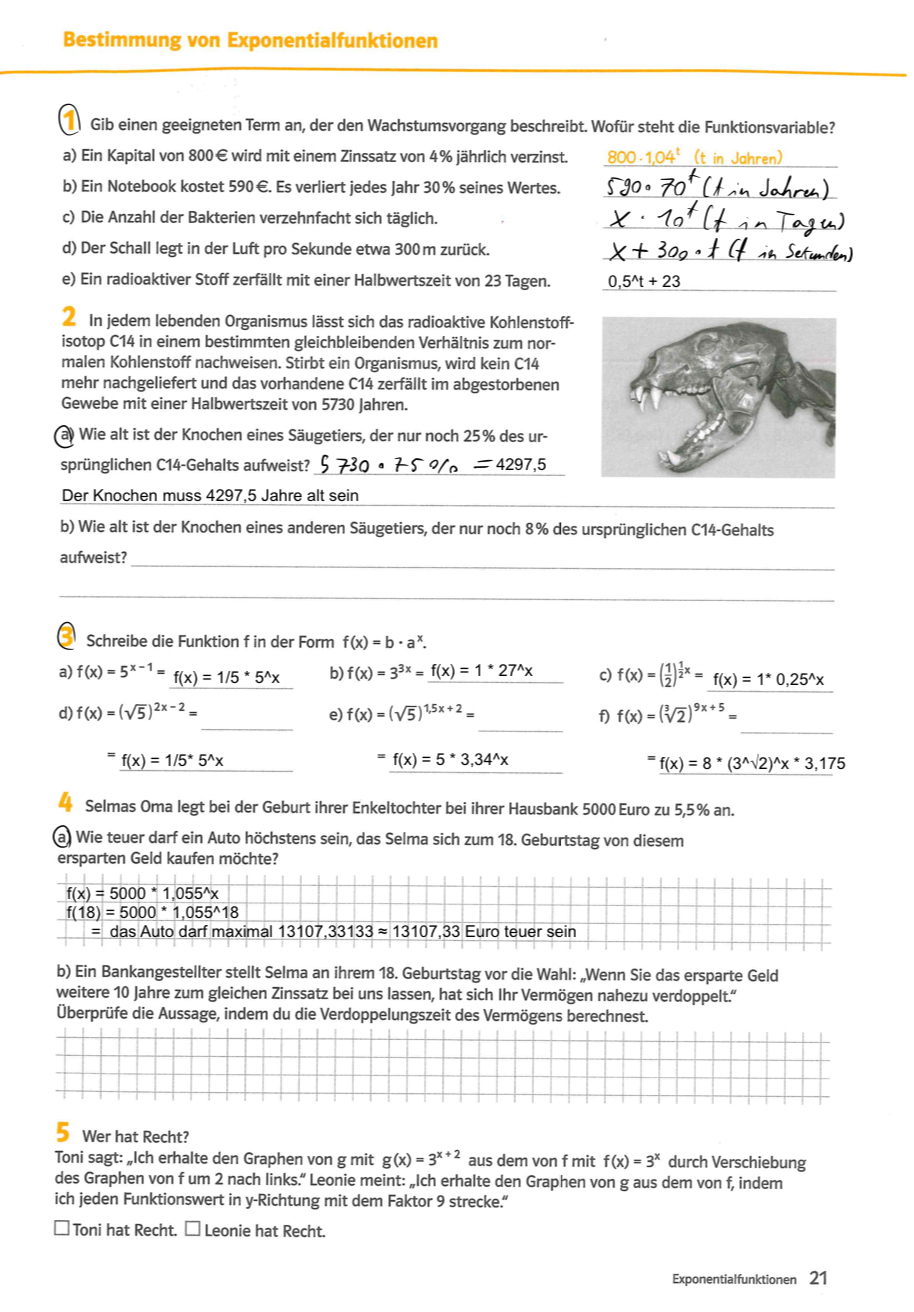 Bestimmung von Exponentialfunktionen
1 Gib einen geeigneten Term an, der den Wachstumsvorgang beschreibt. Wofür steht die Funktionsvariable?
a) Ein Kapital von 800 € wird mit einem Zinssatz von 4 % jährlich verzinst. 800 · 1,04^t (t in Jahren)
b) Ein Notebook kostet 590 €. Es verliert jedes Jahr 30 % seines Wertes. 590 · 70^t (t in Jahren)
c) Die Anzahl der Bakterien verzehnfacht sich täglich. x · 10^t (t in Tagen)
d) Der Schall legt in der Luft pro Sekunde etwa 300 m zurück. x + 300 · t (t in Sekunden)
e) Ein radioaktiver Stoff zerfällt mit einer Halbwertszeit von 23 Tagen. 0,5^t + 23
2 In jedem lebenden Organismus lässt sich das radioaktive Kohlenstoff-
isotop C14 in einem bestimmten gleichbleibenden Verhältnis zum nor-
malen Kohlenstoff nachweisen. Stirbt ein Organismus, wird kein C14
mehr nachgeliefert und das vorhandene C14 zerfällt im abgestorbenen
Gewebe mit einer Halbwertszeit von 5730 Jahren.
a) Wie alt ist der Knochen eines Säugetiers, der nur noch 25 % des ur-
sprünglichen C14-Gehalts aufweist? 5730 · 75 % = 4297,5
Der Knochen muss 4297,5 Jahre alt sein
b) Wie alt ist der Knochen eines anderen Säugetiers, der nur noch 8 % des ursprünglichen C14-Gehalts
aufweist?
3 Schreibe die Funktion f in der Form f(x) = b · a^x.
a) f(x) = 5^(x − 1) = f(x) = 1/5 * 5^x b) f(x) = 3^(3x) = f(x) = 1 * 27^x c) f(x) = (1/2)^(1/2 x) = f(x) = 1* 0,25^x
d) f(x) = (√5)^(2x − 2) = e) f(x) = (√5)^(1,5x + 2) = f) f(x) = (³√2)^(9x + 5) =
= f(x) = 1/5* 5^x = f(x) = 5 * 3,34^x = f(x) = 8 * (3^√2)^x * 3,175
4 Selmas Oma legt bei der Geburt ihrer Enkeltochter bei ihrer Hausbank 5000 Euro zu 5,5 % an.
a) Wie teuer darf ein Auto höchstens sein, das Selma sich zum 18. Geburtstag von diesem
ersparten Geld kaufen möchte?
f(x) = 5000 * 1,055^x
f(18) = 5000 * 1,055^18
= das Auto darf maximal 13107,33133 ≈ 13107,33 Euro teuer sein
b) Ein Bankangestellter stellt Selma an ihrem 18. Geburtstag vor die Wahl: „Wenn Sie das ersparte Geld
weitere 10 Jahre zum gleichen Zinssatz bei uns lassen, hat sich Ihr Vermögen nahezu verdoppelt.“
Überprüfe die Aussage, indem du die Verdoppelungszeit des Vermögens berechnest.
5 Wer hat Recht?
Toni sagt: „Ich erhalte den Graphen von g mit g(x) = 3^(x + 2) aus dem von f mit f(x) = 3^x durch Verschiebung
des Graphen von f um 2 nach links.“ Leonie meint: „Ich erhalte den Graphen von g aus dem von f, indem
ich jeden Funktionswert in y-Richtung mit dem Faktor 9 strecke.“
☐ Toni hat Recht. ☐ Leonie hat Recht.
Exponentialfunktionen 21